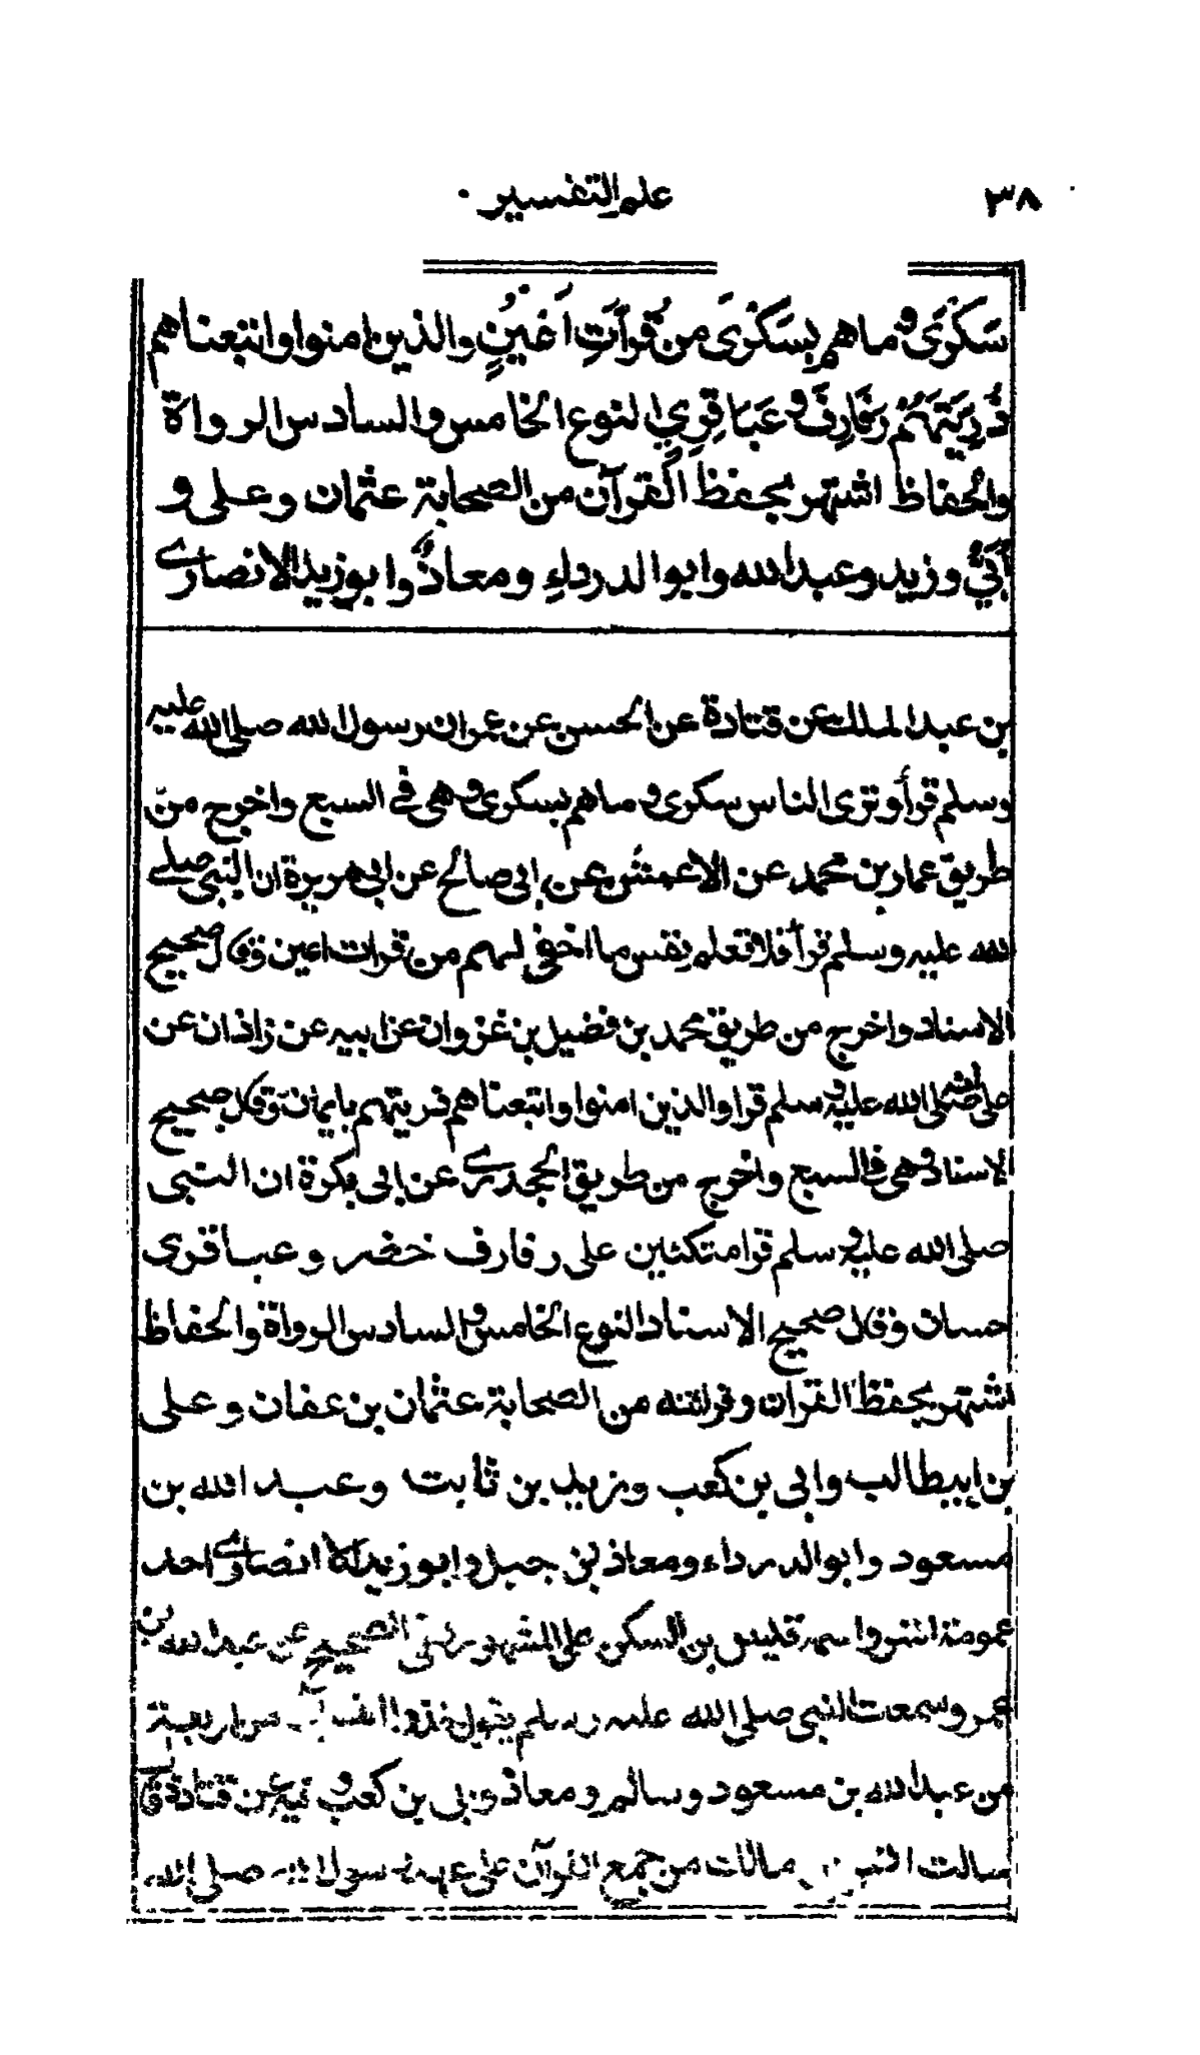 ٣٨
علم التفسير
سَكْرَى وما هم بِسَكْرَى من قُرآتِ اَعْيُنٍ والذين امنوا واتبعناهم
ذُرِيَتَهُمْ رَفَارِفَ و عَبَاقِرِي النوع الخامس والسادس الرواة
والحفاظ اشتهر بحفظ القرآن من الصحابة عثمان وعلى و
أبيٌّ وزيد وعبد الله وابو الدرداءِ ومعاذٌ وابو زيد الانصاري
بن عبد الملك عن قتادة عن الحسن عن عمران رسول الله صلى الله عليه
وسلم قرأ وترى الناس سكرى وما هم بسكرى وهى في السبع واخرج من
طريق عمار بن محمد عن الاعمش عن ابى صالح عن ابى هريرة ان النبى صلى
الله عليه وسلم قرأ فلا تعلم نفس ما اخفى لهم من قرات اعين وقال صحيح
الاسناد واخرج من طريق محمد بن فضيل بن غزوان عن ابيه عن زاذان عن
على انه صلى الله عليه وسلم قرا والذين امنوا واتبعناهم ذريتهم بايمان وقال صحيح
الاسناد وهى فى السبع واخرج من طريق الجحدري عن ابى بكرة ان النبى
صلى الله عليه وسلم قرا متكئين على رفارف خضر وعباقرى
حسان وقال صحيح الاسناد النوع الخامس والسادس الرواة والحفاظ
اشتهر بحفظ القران وقرائته من الصحابة عثمان بن عفان وعلى
بن ابيطالب وابى بن كعب وزيد بن ثابت وعبد الله بن
مسعود وابو الدرداء ومعاذ بن جبل وابو زيد الانصاري احد
عمومة انس واسمه قيس بن السكن على المشهور ففى الصحيح عن عبد الله بن
عمرو سمعت النبى صلى الله عليه وسلم يقول خذوا القرآن من اربعة
من عبد الله بن مسعود وسالم ومعاذ وابى بن كعب وفيه عن قتادة قال
سالت انس بن مالك من جمع القرآن على عهد رسول الله صلى الله